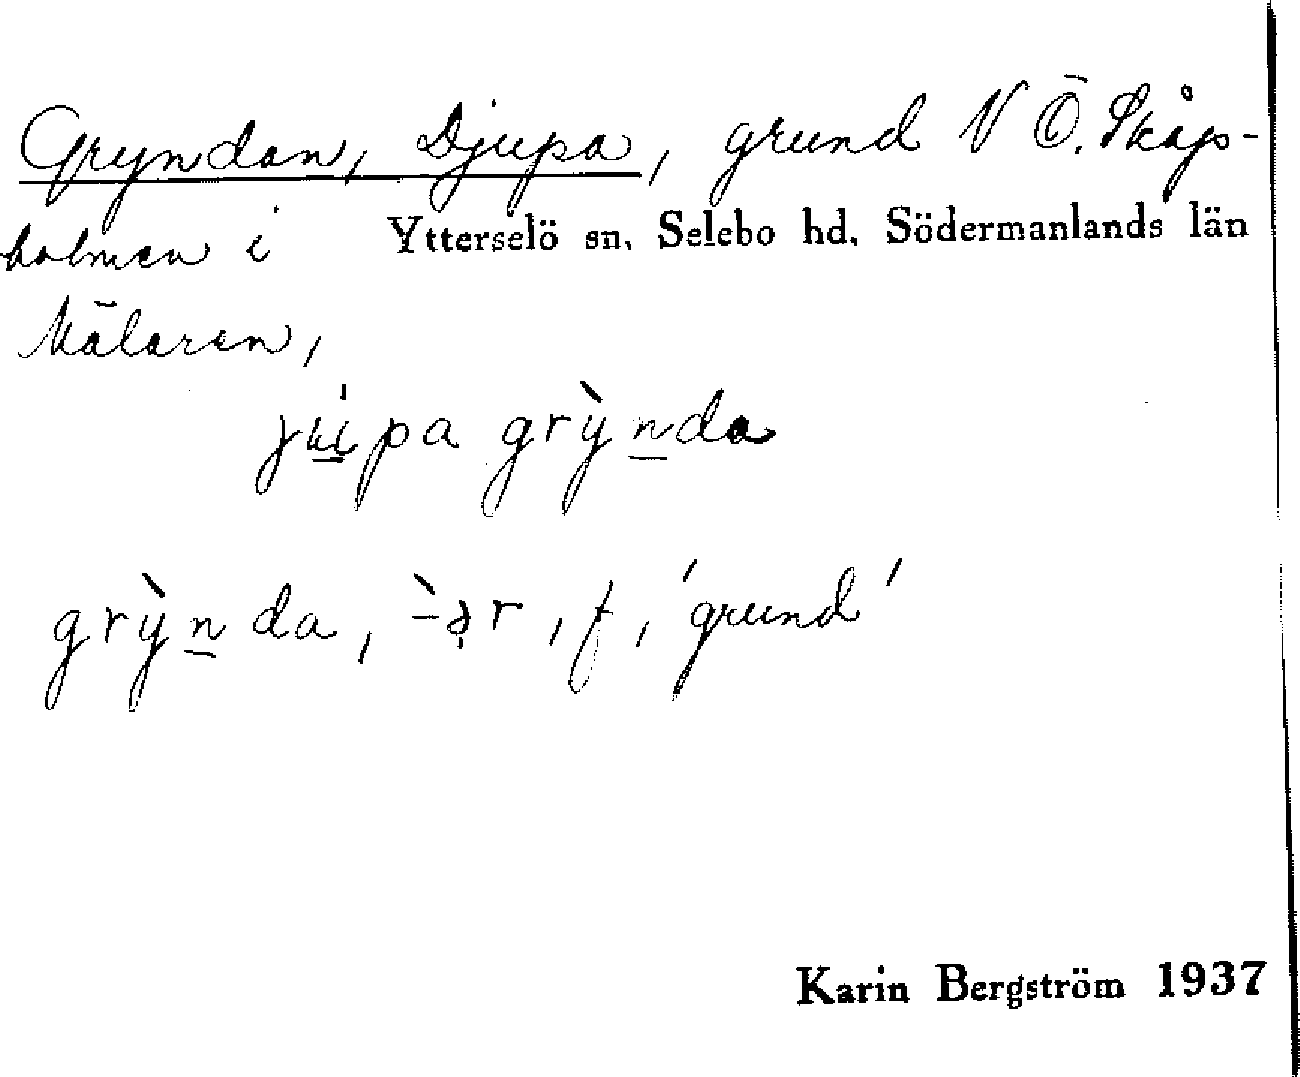 Gryndan, Djupa, grund V Ö. Skåp-
holmen i Ytterselö sn, Selebo hd, Södermanlands län
Mälaren,
ju̲i̲pa grỳn̲da
grỳn̲da, -̀ər, f, 'grund'
Karin Bergström 1937